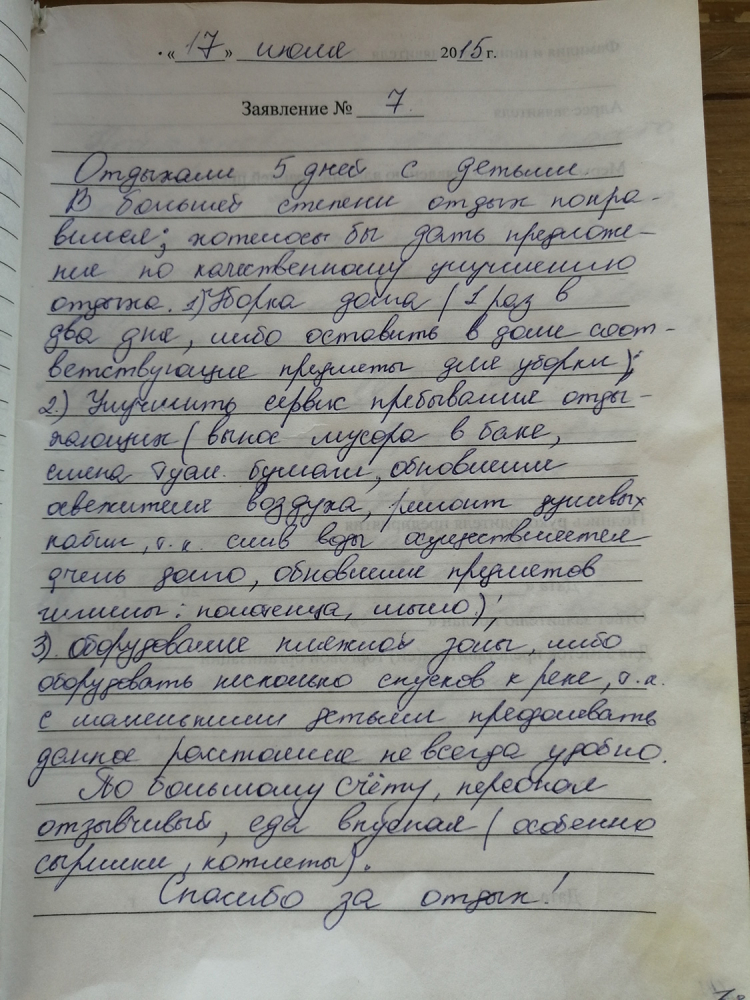 «17» июля 2015 г.
Заявление № 7
Отдыхали 5 дней с детьми.
В большей степени отдых понра-
вился; хотелось бы дать предложе-
ние по качественному улучшению
отдыха. 1) Уборка дома (1 раз в
два дня, либо оставить в доме соот-
ветствующие предметы для уборки);
2.) Улучшить сервис пребывания отды-
хающих (вынос мусора в баке,
смена туал. бумаги, обновление
освежителя воздуха, ремонт душевых
кабин, т.к. слив воды осуществляется
очень долго, обновление предметов
гигиены: полотенца, мыло.);
3) оборудование пляжной зоны, либо
оборудовать несколько спусков к реке, т.к.
с маленькими детьми преодолевать
данное расстояние не всегда удобно.
По большому счёту, персонал
отзывчивый, еда вкусная (особенно
сырники, котлеты).
Спасибо за отдых!